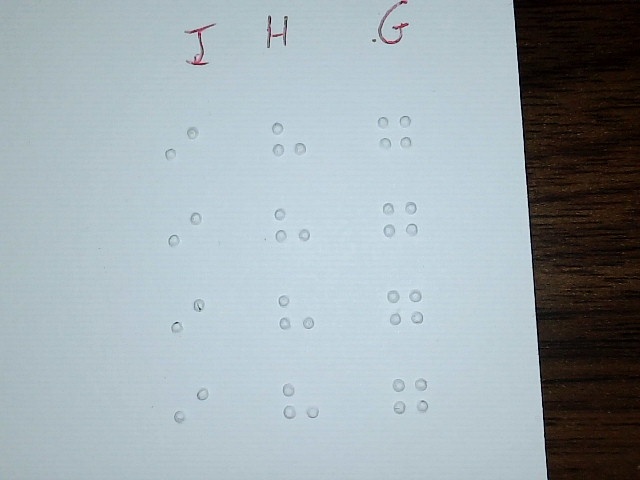 I H G
⠊ ⠓ ⠛
⠊ ⠓ ⠛
⠊ ⠓ ⠛
⠊ ⠓ ⠛